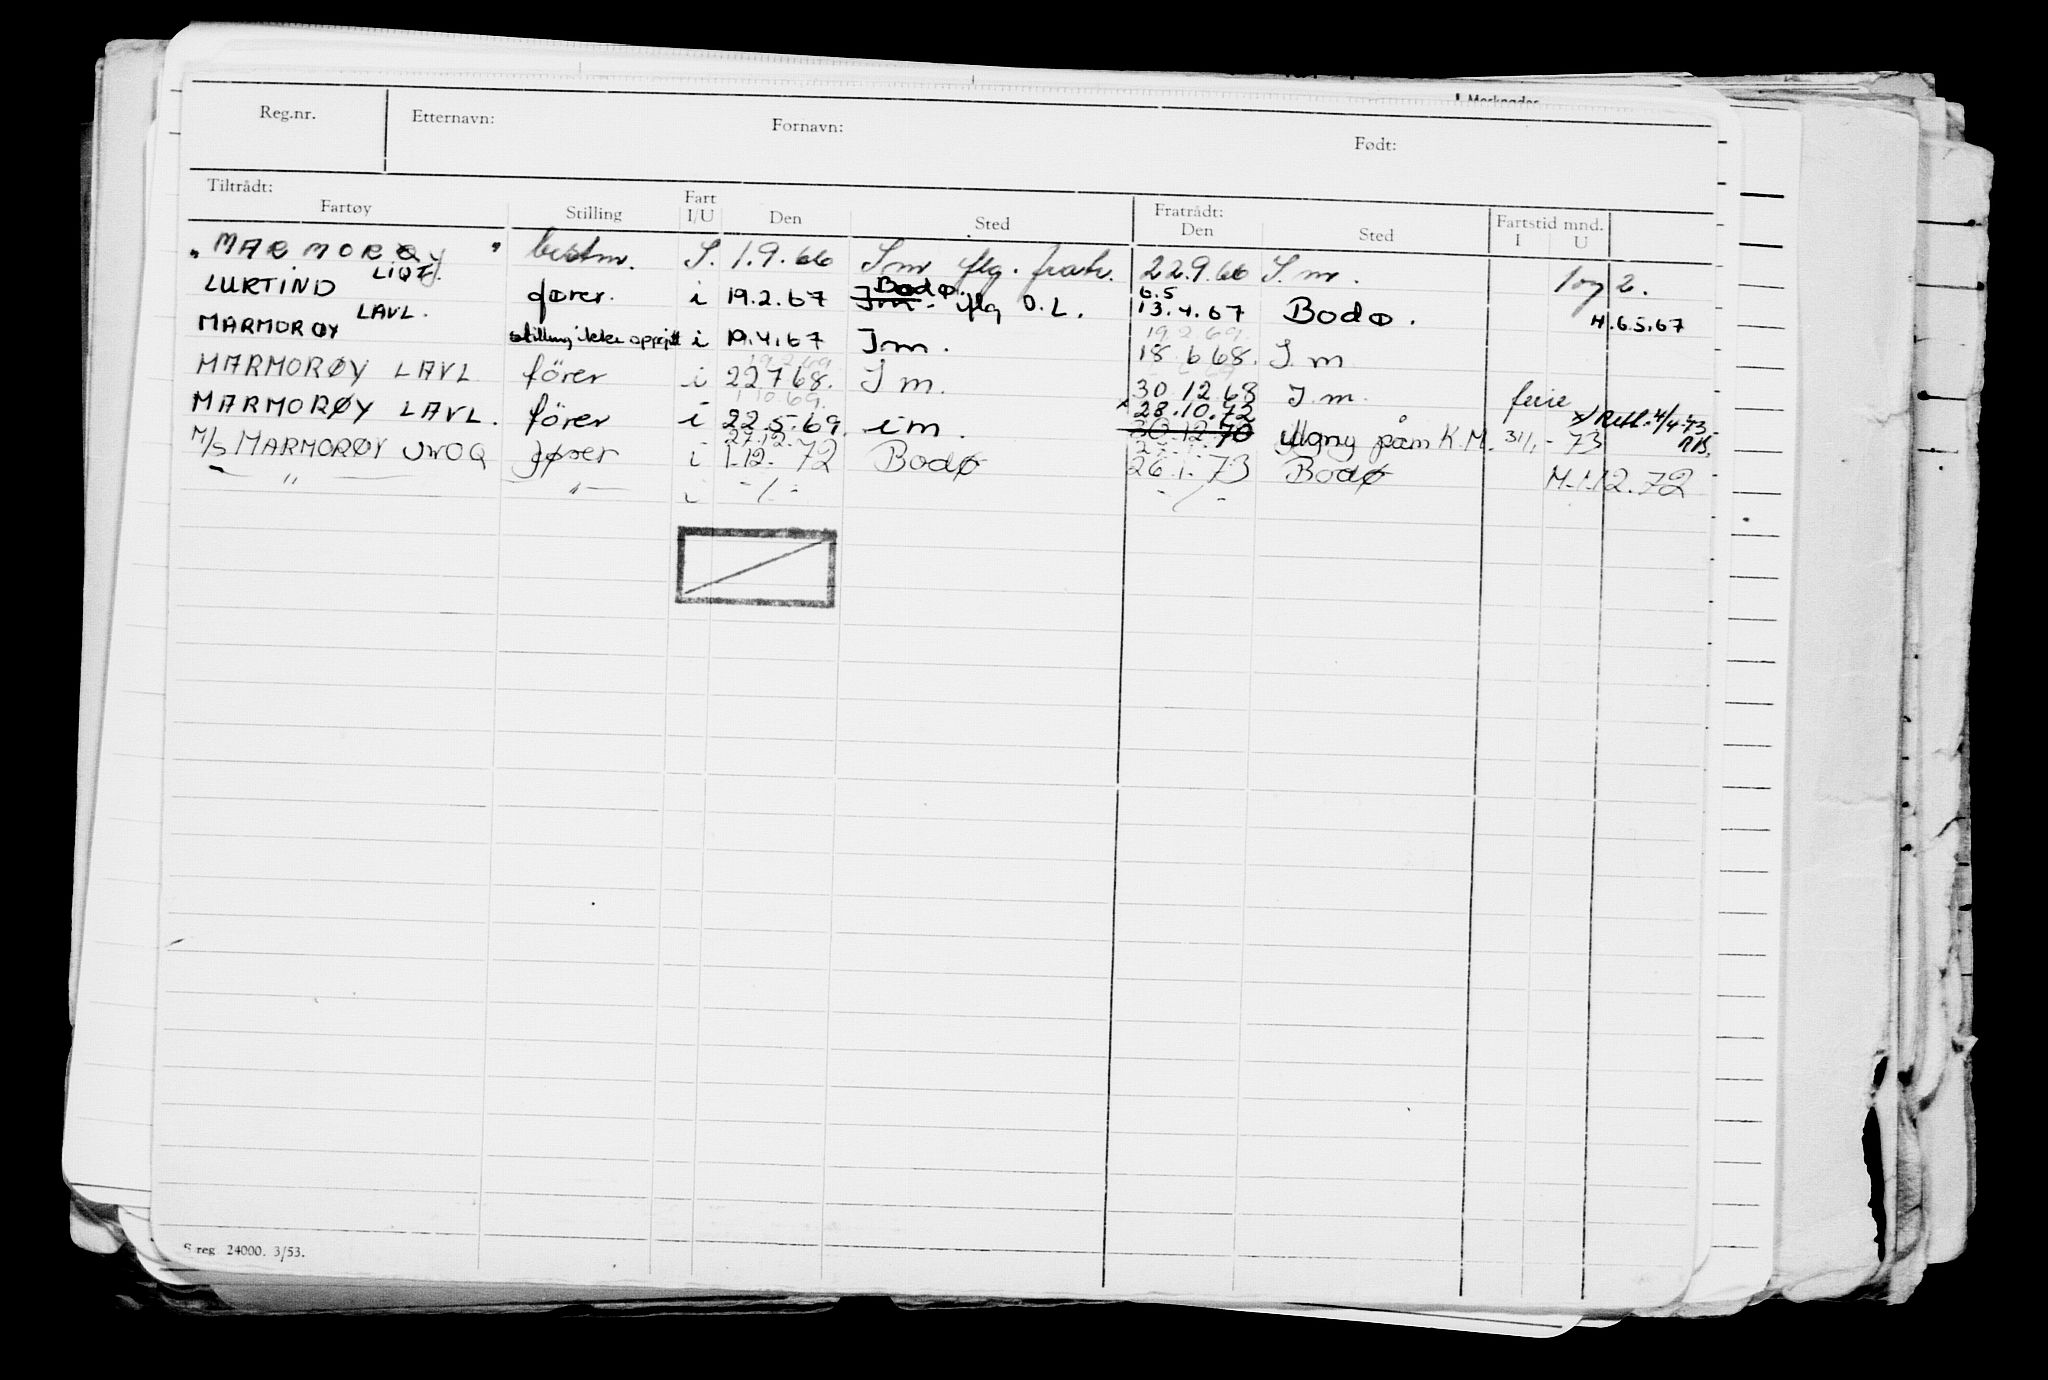 Merknader
Reg.nr. Etternavn: Fornavn: Født:
Tiltrådt: Fratrådt: Fartstid mnd.
Fartøy Stilling Fart I/U Den Sted Den Sted I U
"MARMORØY" bestm. I. 1.9.66 I m flg. fratr. 22.9.66 I. m. 1 og 2.
LURTIND fører. i 19.2.67 Bodø. I m. flg D.L. 6.5 13.4.67 Bodø. H.6.5.67
MARMORØY LAVL. stilling ikke oppgitt i 19.4.67 I.m. 19 2 69. 18 6 68. I. m
MARMORØY LAVL förer i 19 2 69 22 7 68. I m. 30 12 68 I.m. ferie
MARMORØY LAVL. förer i 1 10 69. 22.5.69. i m. x 28.10.72 30.12.70 påm K.M. 31/1 - 73 x/ Rett. 4/4-73
M/S MARMORØY fører i 27.12. 1.12. 72 Bodø 26.1.73 Bodø M-1.12.72
— " — — " — i -/- -/-
S reg. 24000. 3/53.